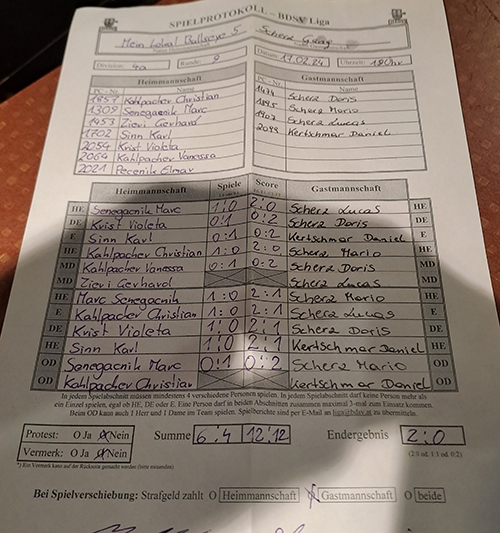 SPIELPROTOKOLL – BDSV Liga
Mein Lokal Bullseye 5 Scherz Gang
Division: 4a Runde: 9 Datum: 17.02.24 Uhrzeit: 19 Uhr
Heimmannschaft Gastmannschaft
PC - Nr. Name PC - Nr. Name
1857 Kahlpacher Christian 1474 Scherz Doris
1309 Senegacnik Marc 1895 Scherz Mario
1453 Zieri Gerhard 1902 Scherz Lucas
1702 Sinn Karl 2099 Kertschmar Daniel
2054 Krist Violeta
2064 Kahlpacher Vanessa
2021 Pecenik Elmar
Heimmannschaft Spiele Score Gastmannschaft
HE Senegacnik Marc 1:0 2:0 Scherz Lucas HE
DE Krist Violeta 0:1 0:2 Scherz Doris DE
E Sinn Karl 0:1 0:2 Kertschmar Daniel E
HE Kahlpacher Christian 1:0 2:0 Scherz Mario HE
MD Kahlpacher Vanessa 0:1 0:2 Scherz Doris MD
MD Zieri Gerhard Scherz Lucas MD
HE Marc Senegacnik 1:0 2:1 Scherz Mario HE
E Kahlpacher Christian 1:0 2:1 Scherz Lucas E
DE Krist Violeta 1:0 2:1 Scherz Doris DE
HE Sinn Karl 1:0 2:1 Kertschmar Daniel HE
OD Senegacnik Marc 0:1 0:2 Scherz Mario OD
OD Kahlpacher Christian Kertschmar Daniel OD
In jedem Spielabschnitt müssen mindestens 4 verschiedene Personen spielen. In jedem Spielabschnitt darf keine Person mehr als
ein Einzel spielen, egal ob HE, DE oder E. Eine Person darf in beiden Abschnitten zusammen maximal 3-mal zum Einsatz kommen.
Beim OD kann auch 1 Herr und 1 Dame im Team spielen. Spielberichte sind per E-Mail an liga@bdsv.at zu übermitteln.
Protest: O Ja O Nein Summe 6:4 12:12 Endergebnis 2:0
Vermerk: O Ja O Nein (2:0 od. 1:1 od. 0:2)
*) Ein Vermerk kann auf der Rückseite gemacht werden (bitte verwenden)
Bei Spielverschiebung: Strafgeld zahlt O Heimmannschaft O Gastmannschaft O beide